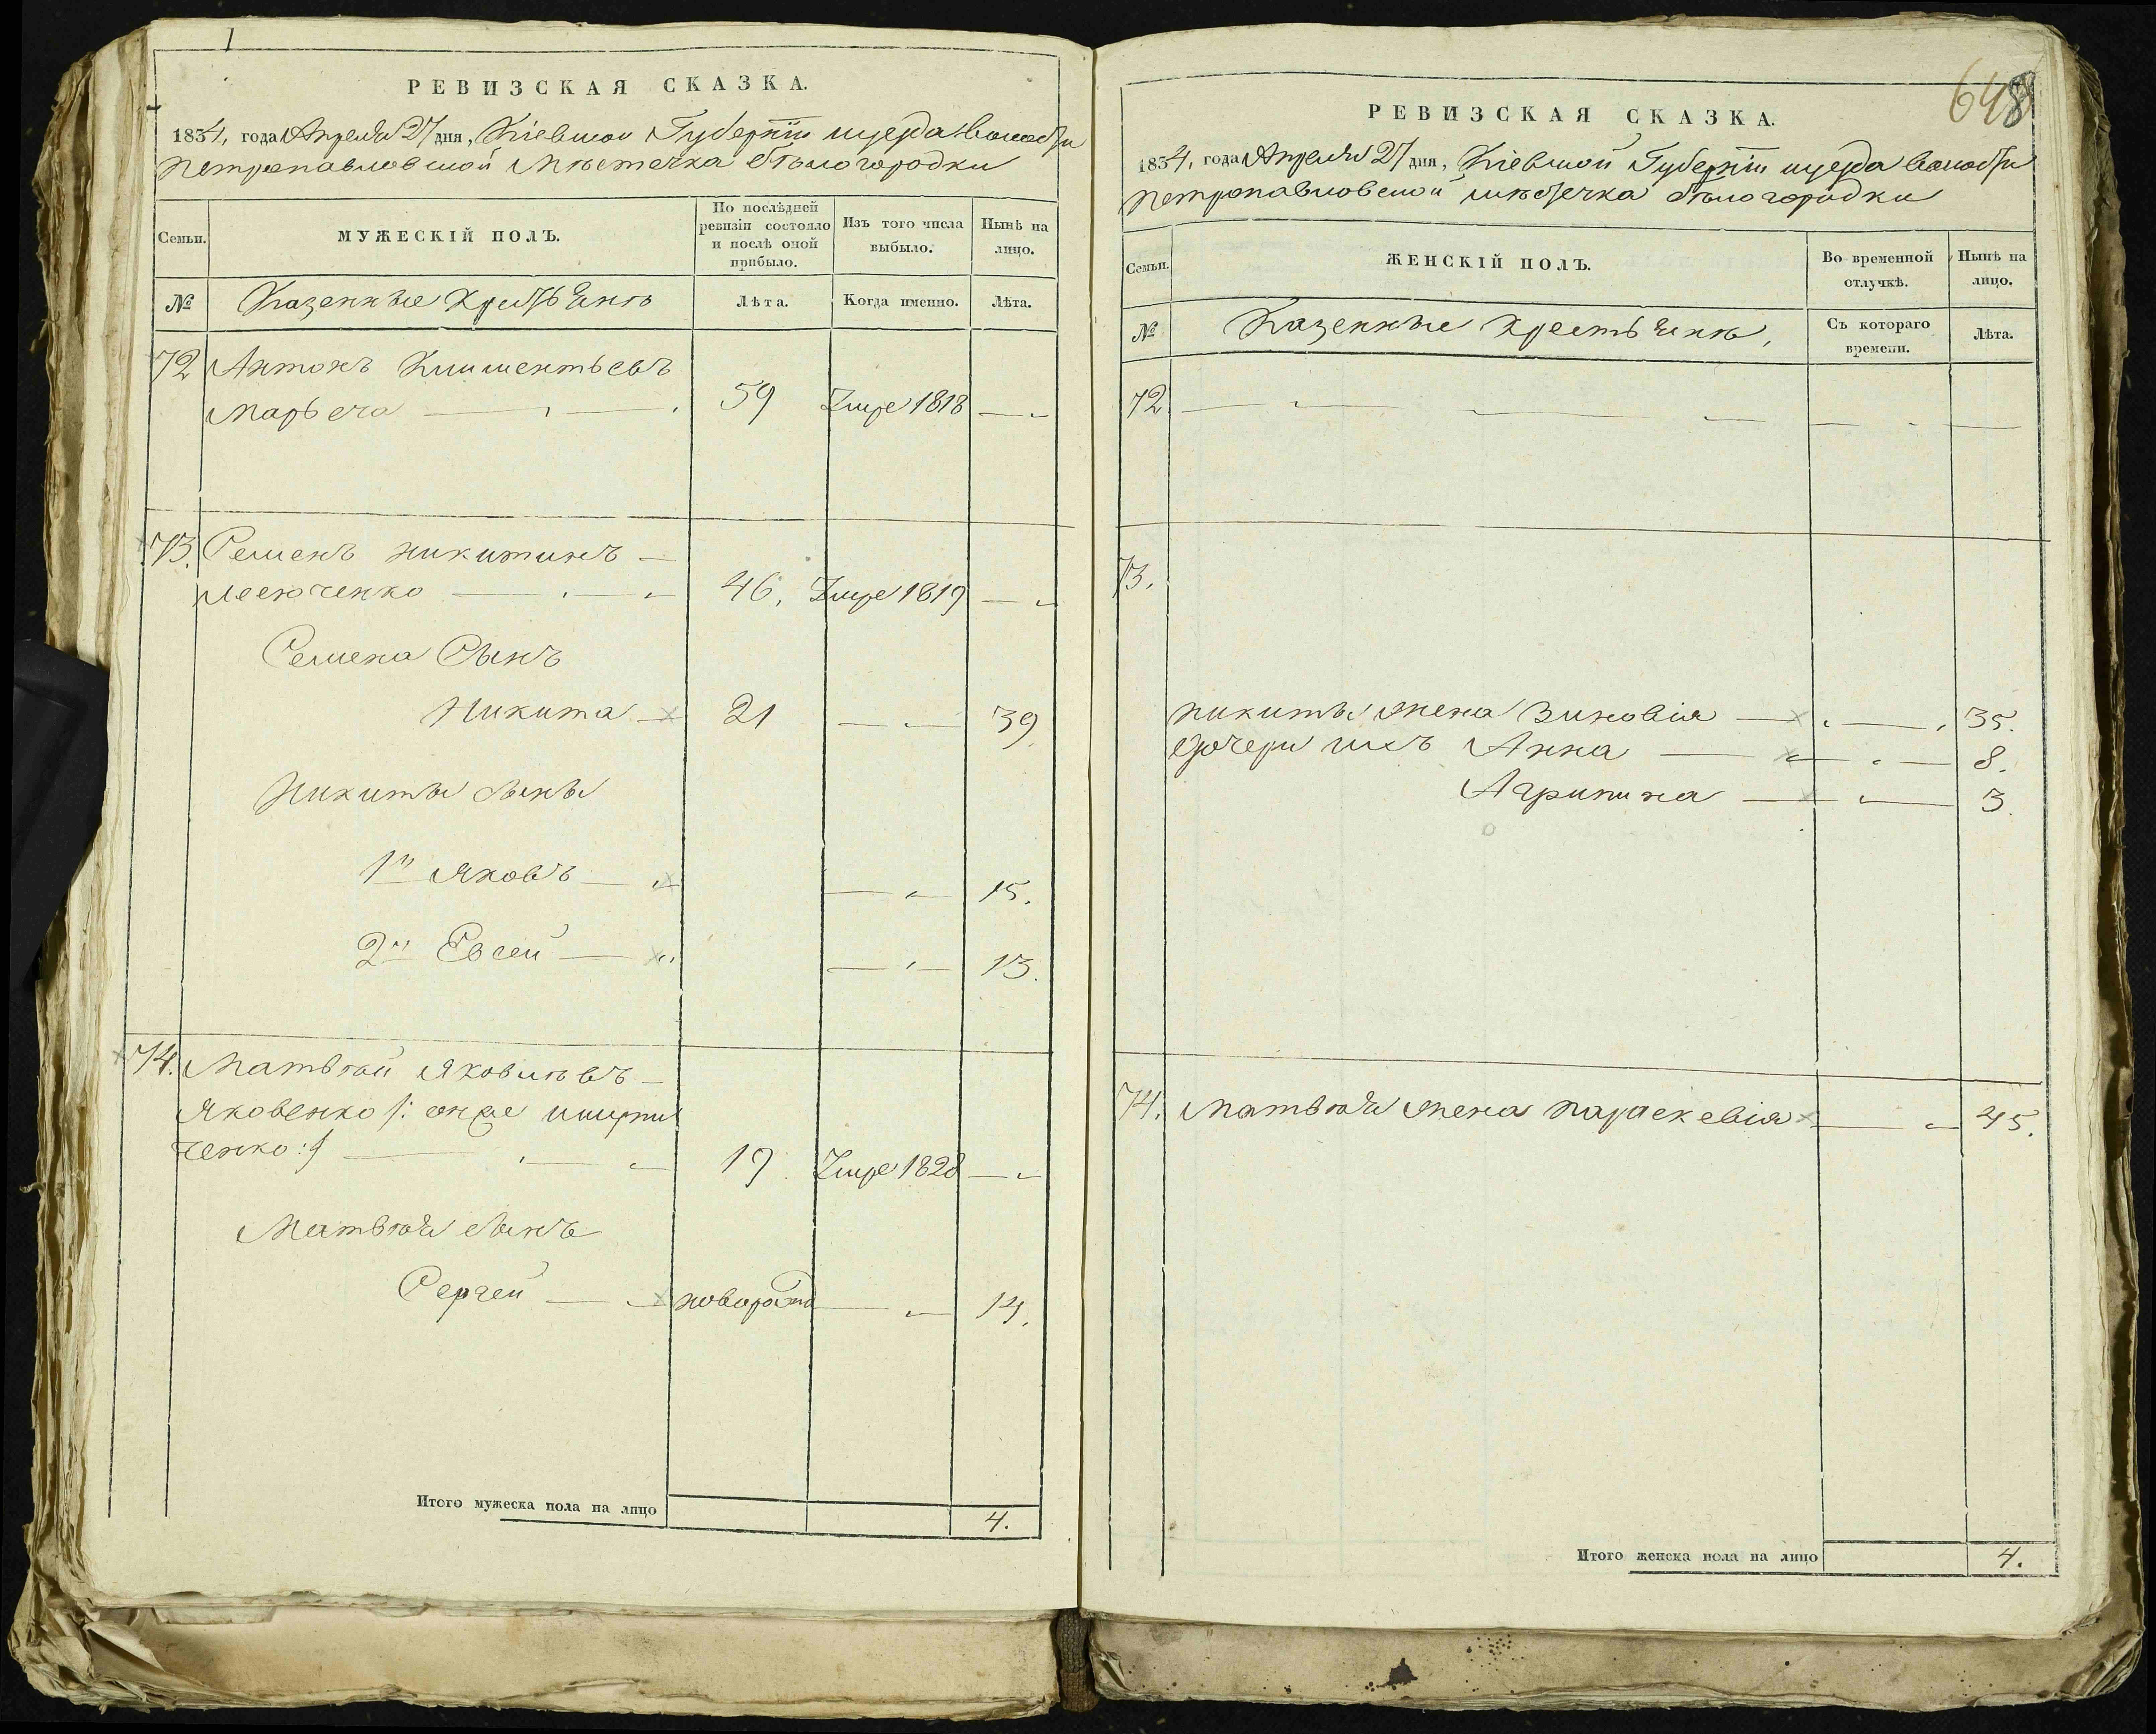 РЕВИЗСКАЯ СКАЗКА.
1834, года Апреля 27 дня, Кіевской Губерніи уезда волости
петропавловской мѣстечка бѣлогородки
Семьи.
МУЖЕСКІЙ ПОЛЪ.
По послѣдней ревизіи состояло и послѣ оной прибыло.
Изъ того числа выбыло.
Нынѣ на лицо.
№
Казенные Крестьянѣ
Лѣта.
Когда именно.
Лѣта.
72 Антонъ Климентьевъ
59 Умре 1818
73. Семенъ никитинъ
46, Умре 1819
Семена Сынъ
Никита 21 39
Никиты сыны
1й Яковъ 15.
2й Евсей 13.
74. Матвѣй Яковлевъ
Яковенко /: онже
ченко :/ 19 Умре 1828
Матвѣя сынъ
Сергей новорожд 14.
Итого мужеска пола на лицо 4.
648
РЕВИЗСКАЯ СКАЗКА.
1834, года Апреля 27 дня, Кіевской Губерніи уезда волости
петропавловской мѣстечка бѣлогородки
Семьи.
ЖЕНСКІЙ ПОЛЪ.
Во временной отлучкѣ.
Нынѣ на лицо.
№
Казенные крестьянѣ,
Съ котораго времени.
Лѣта.
72
73.
никиты жена Зиновія 35.
дочери ихъ Анна 8.
Агрипина 3.
74. Матвѣя жена параскевія 45.
Итого женска пола на лицо 4.